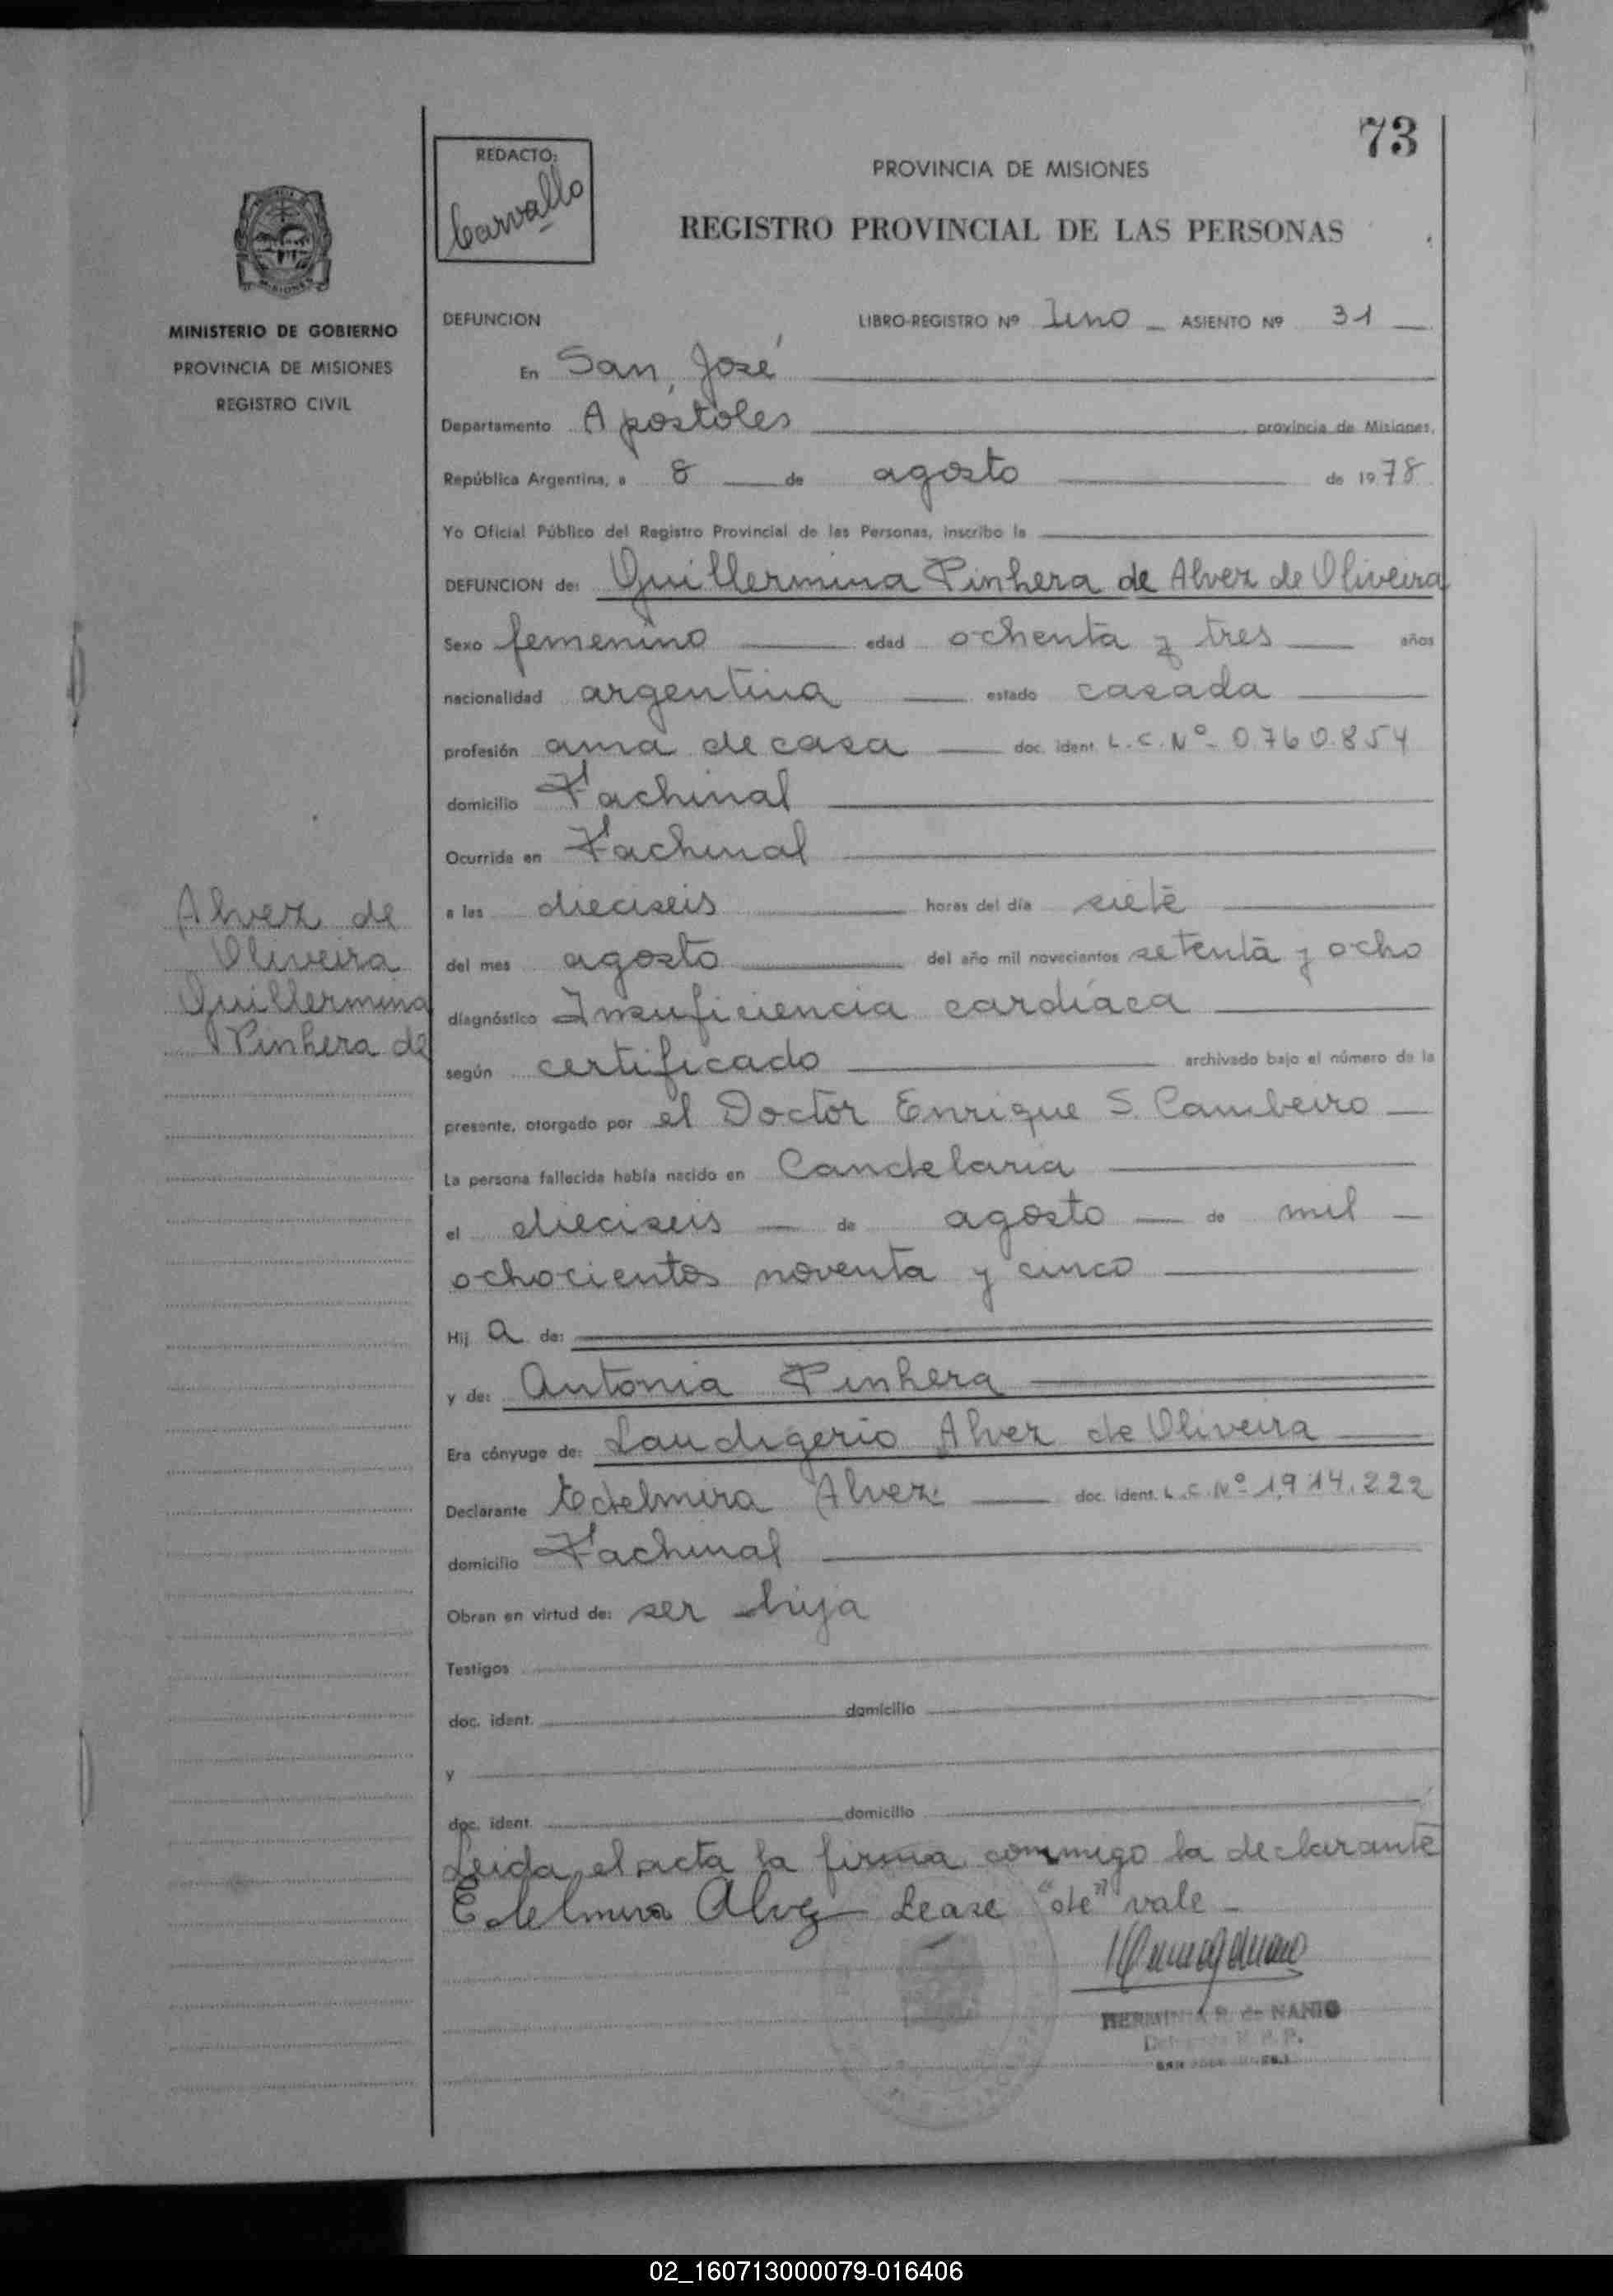 73
REDACTO:
Carvallo
PROVINCIA DE MISIONES
REGISTRO PROVINCIAL DE LAS PERSONAS
MINISTERIO DE GOBIERNO
PROVINCIA DE MISIONES
REGISTRO CIVIL
DEFUNCION LIBRO-REGISTRO Nº Uno ASIENTO Nº 31
En San José
Departamento Apóstoles provincia de Misiones,
República Argentina, a 8 de agosto de 1978
Yo Oficial Público del Registro Provincial de las Personas, inscribo la
DEFUNCION de: Guillermina Pinhera de Alvez de Oliveira
Sexo femenino edad ochenta y tres años
nacionalidad argentina estado casada
profesión ama de casa doc. ident. L.C.Nº 0.760.854
domicilio Fachinal
Ocurrida en Fachinal
a las dieciseis horas del día siete
del mes agosto del año mil novecientos setenta y ocho
diagnóstico Insuficiencia cardíaca
según certificado archivado bajo el número de la
presente, otorgado por el Doctor Enrique S. Cambeiro
La persona fallecida había nacido en Candelaria
el dieciseis de agosto de mil
ochocientos noventa y cinco
Hij a de:
y de: Antonia Pinhera
Era cónyuge de: Laudigerio Alvez de Oliveira
Declarante Edelmira Alvez doc. ident. L.C.Nº 1.914.222
domicilio Fachinal
Obran en virtud de: ser hija
Testigos
doc. ident. domicilio
y
doc. ident. domicilio
Leida el acta la firma conmigo la declarante
Edelmira Alvez Lease "de" vale
HERMINIA R. de NANIO
Alvez de
Oliveira
Guillermina
Pinhera de
02_160713000079-016406